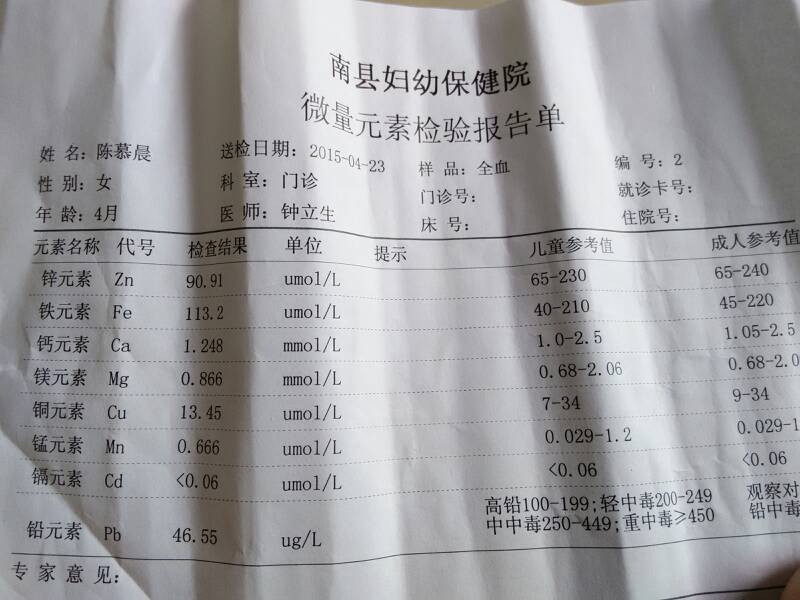 南县妇幼保健院
微量元素检验报告单
姓 名: 陈慕晨 送检日期: 2015-04-23 样 品: 全血 编 号: 2
性 别: 女 科 室: 门诊 门诊号: 就诊卡号:
年 龄: 4月 医 师: 钟立生 床 号: 住院号:
元素名称 代号 检查结果 单位 提示 儿童参考值 成人参考值
锌元素 Zn 90.91 umol/L 65-230 65-240
铁元素 Fe 113.2 umol/L 40-210 45-220
钙元素 Ca 1.248 mmol/L 1.0-2.5 1.05-2.5
镁元素 Mg 0.866 mmol/L 0.68-2.06 0.68-2.0
铜元素 Cu 13.45 umol/L 7-34 9-34
锰元素 Mn 0.666 umol/L 0.029-1.2 0.029-1
镉元素 Cd <0.06 umol/L <0.06 <0.06
铅元素 Pb 46.55 ug/L 高铅100-199;轻中毒200-249 观察对
中中毒250-449;重中毒≥450 铅中毒
专 家 意 见: